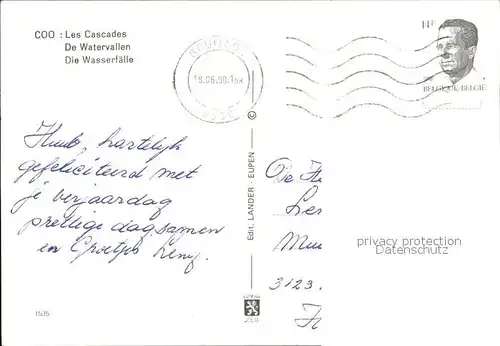 COO : Les Cascades
De Watervallen
Die Wasserfälle
14F
BELGIQUE-BELGIË
Huub, hartelijk
gefeliciteerd met
je verjaardag
prettige dag samen
en Groetjes Leny.
Edit. LANDER - EUPEN
©
De
Mu
3123.
privacy protection
Datenschutz
1535